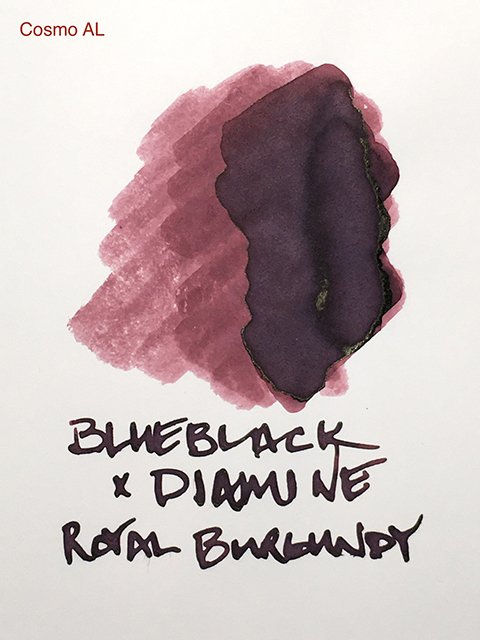 Cosmo AL
BLUEBLACK
x DIAMINE
ROYAL BURGUNDY